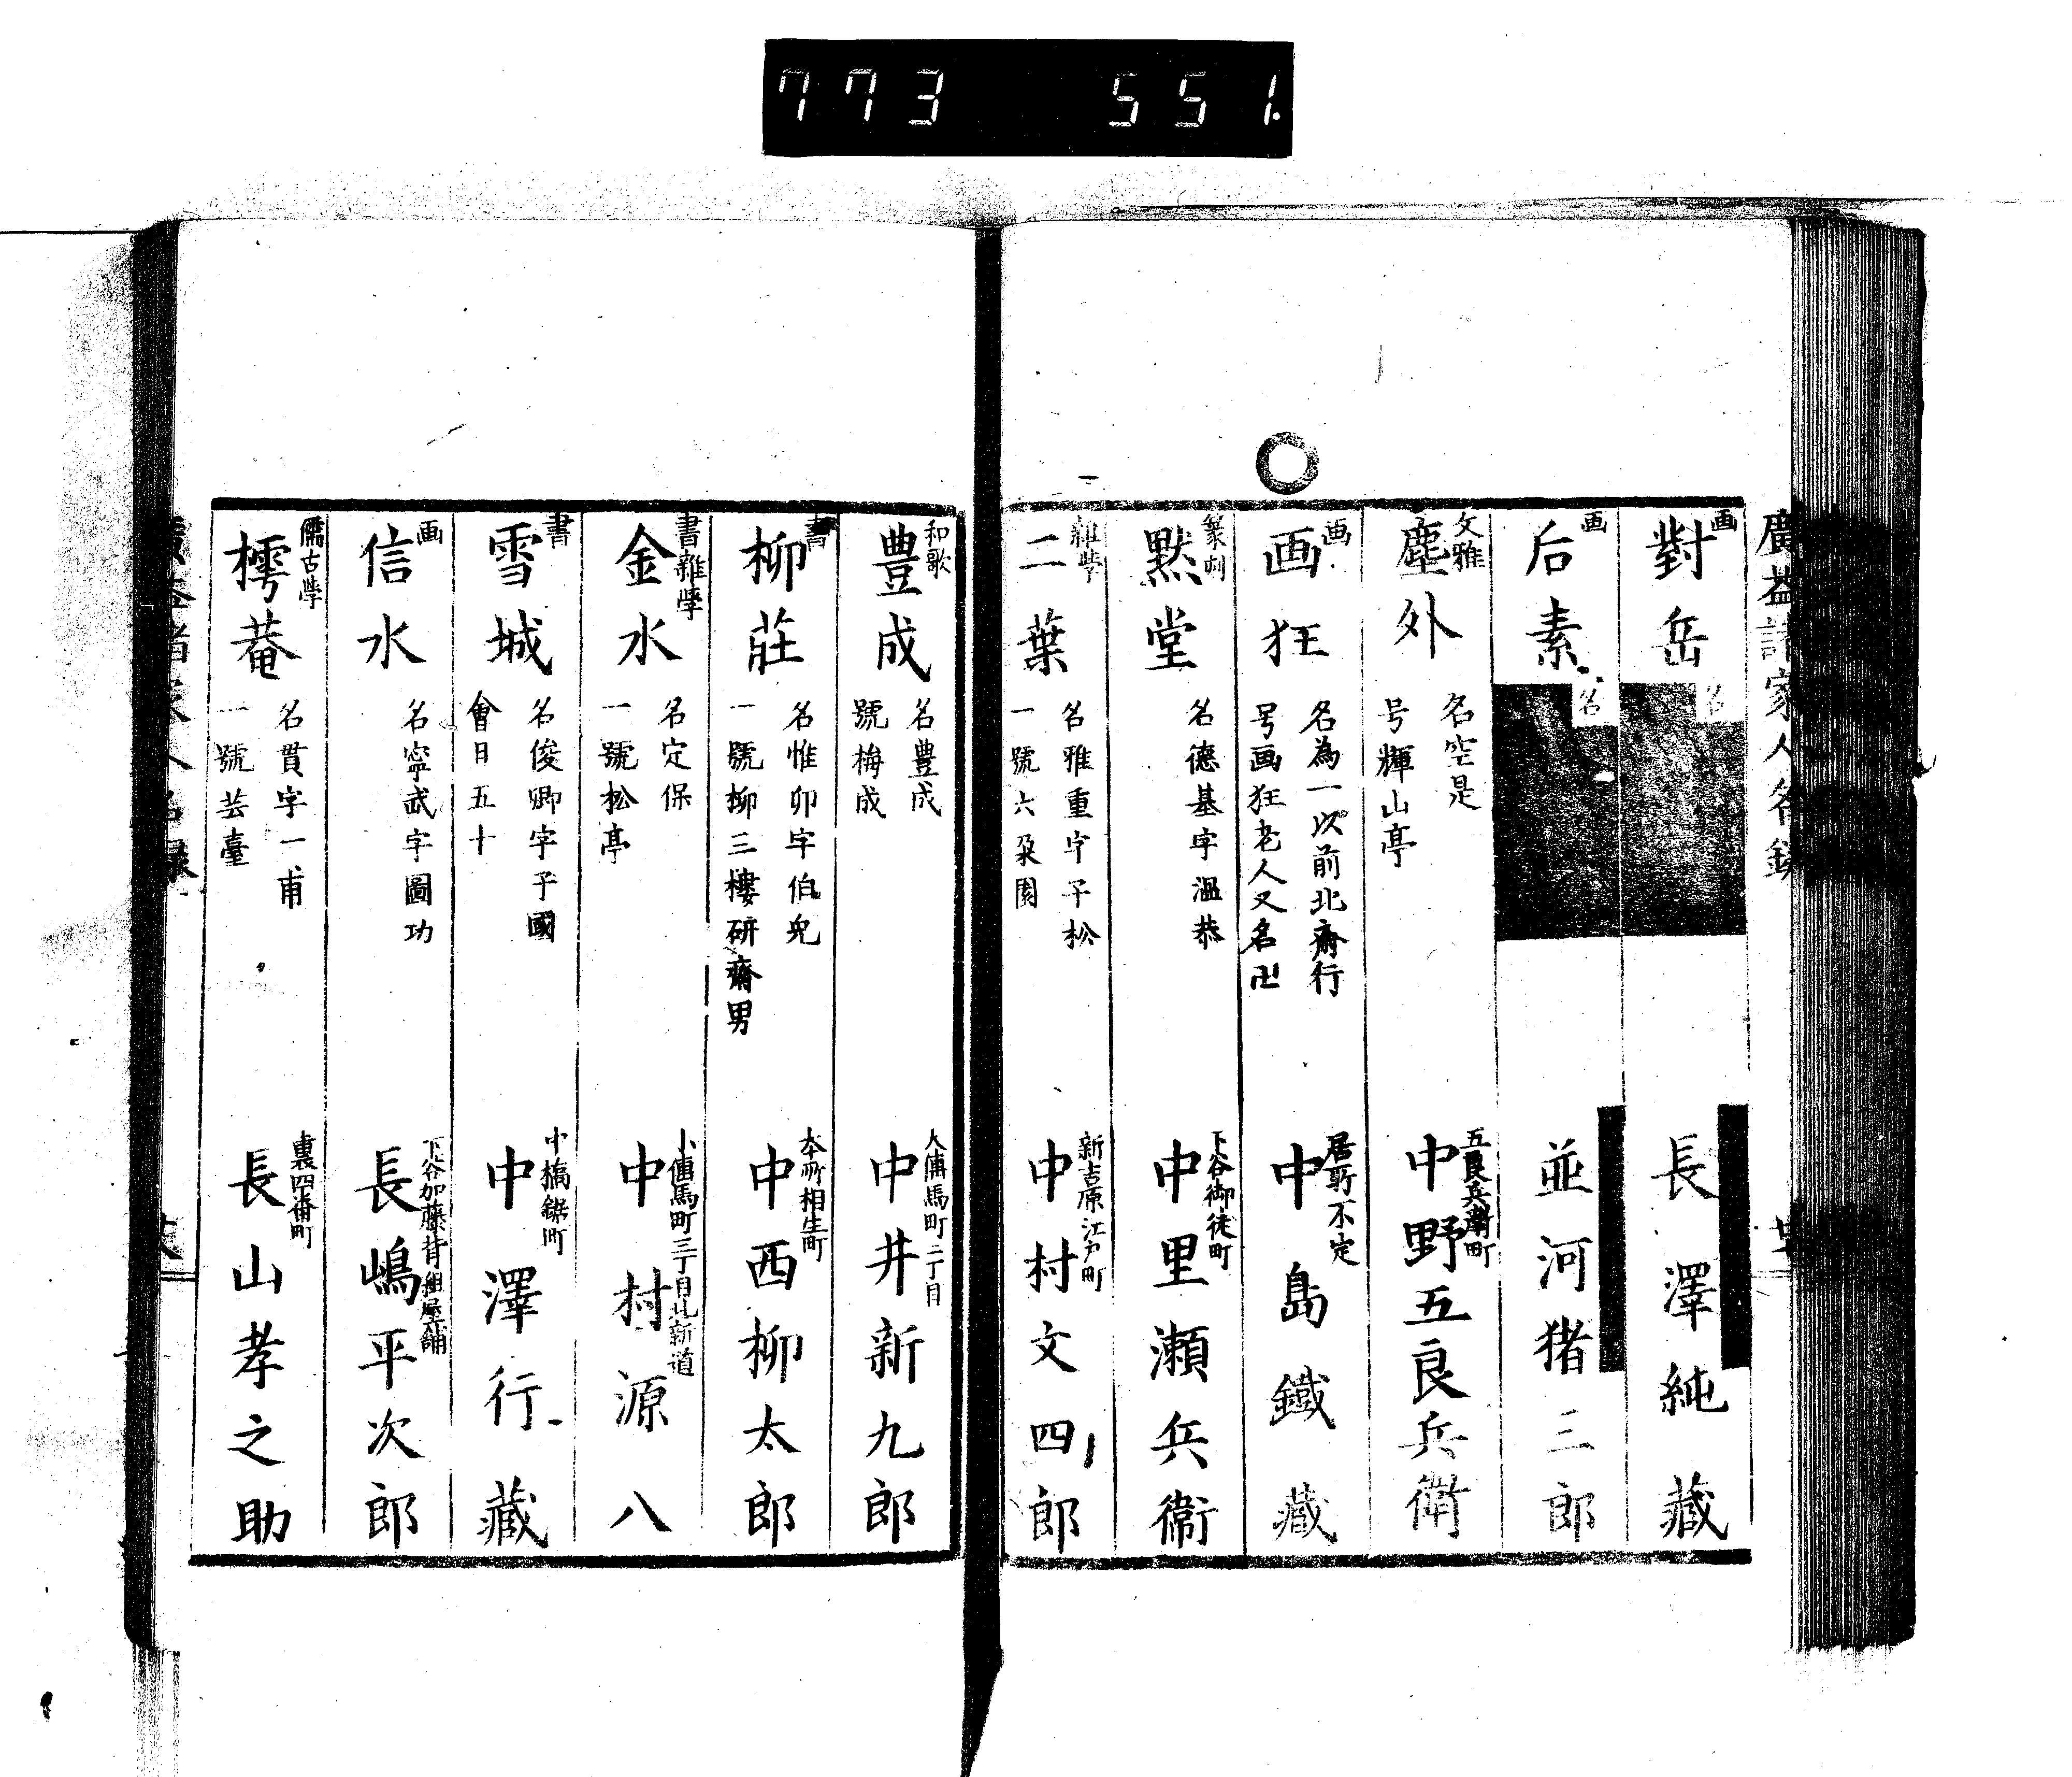 773 551.
廣益諸家人名録
画
對岳
名
長澤純藏
画
后素
名
並河猪三郎
文雅
塵外
名空是
号輝山亭
五良兵衛町
中野五良兵衛
画
画狂
名為一以前北齋行
号画狂老人又名卍
居所不定
中島鐵藏
篆刻
黙堂
名德基字温恭
下谷御徒町
中里瀬兵衛
雜學
二葉
名雅重字子松
一號六朶園
新吉原江戸町
中村文四郎
和歌
豊成
名豊成
號梅成
大傳馬町二丁目
中井新九郎
書
柳莊
名惟卯字伯皃
一號柳三樓研齋男
本所相生町
中西柳太郎
書雜學
金水
名定保
一號松亭
小傳馬町三丁目北新道
中村源八
書
雪城
名俊卿字子國
會日五十
中橋鋸町
中澤行藏
画
信水
名寧武字圖功
下谷加藤背組屋鋪
長嶋平次郎
儒古學
樗菴
名貫字一甫
一號芸臺
裏四番町
長山孝之助